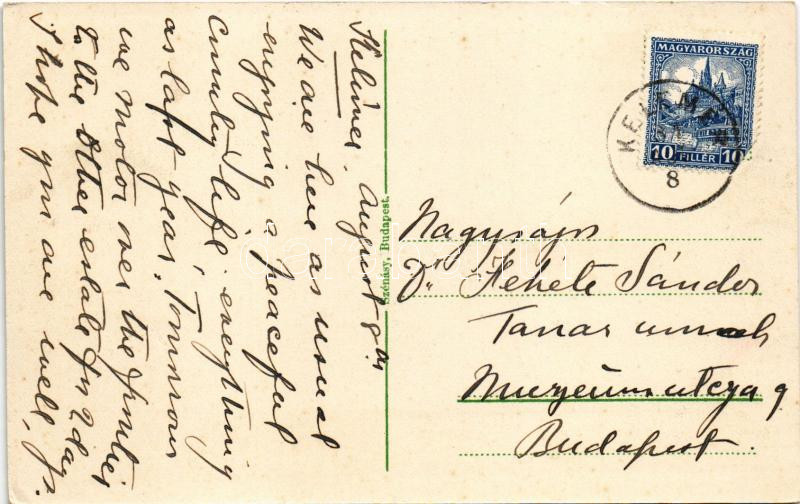 Kelemér, August 8th
We are here as usual
enjoying a peaceful
country life, everything
as last year. Tomorrow
we motor over the frontier
to the other estate for 2 days
I hope you are well, yrs.
Szénásy, Budapest.
MAGYARORSZÁG
10 FILLÉR 10
KELEMÉR
8
Nagyságos
Dr Fekete Sándor
Tanár úrnak
Muzeum utcza 9
Budapest.
darabanth